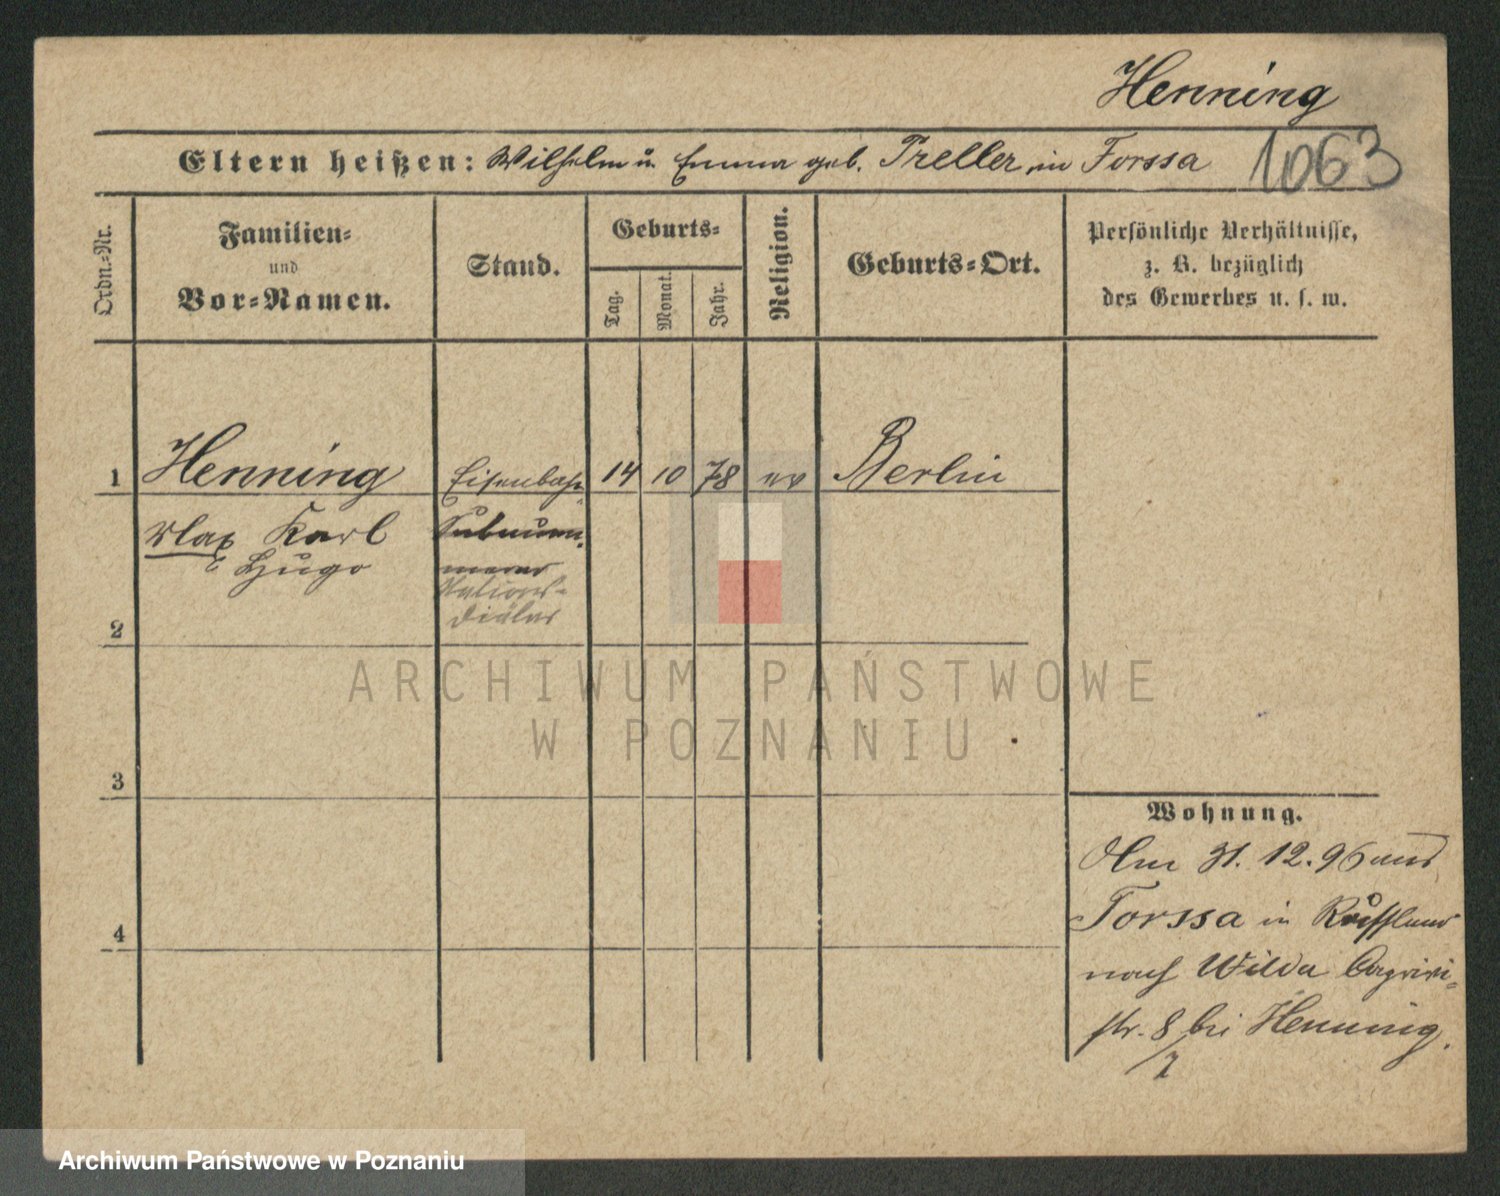 Henning
Eltern heißen: Wilhelm u. Emma geb. Treller, in Forssa 1063
Ordn.-Nr.
Familien-
und
Vor-Namen.
Stand.
Geburts-
Tag.
Monat.
Jahr.
Religion.
Geburts-Ort.
Persönliche Verhältnisse,
z. B. bezüglich
des Gewerbes u. s. w.
1 Henning Eisenbahn 14 10 78 ev Berlin
Max Karl
Hugo
Stations-
Diätar
2
ARCHIWUM PAŃSTWOWE
W POZNANIU
3
4
Wohnung.
Am 31. 12. 96 aus
Forssa in Russland
nach Wilda Caprivi-
str. 8 bei Henning.
Archiwum Państwowe w Poznaniu